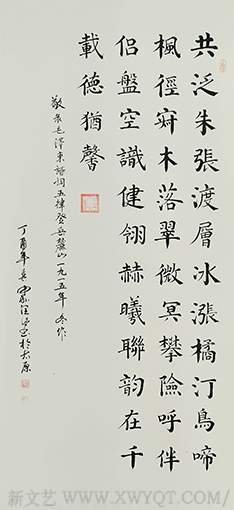 共泛朱張渡層冰漲橘汀鳥啼
楓徑寂木落翠微冥攀險呼伴
侶盤空識健翎赫曦聯韵在千
載德猶馨
敬录毛澤東詩詞五律登岳麓山一九一五年冬作
丁酉年 於太原
新文艺 WWW.XWYQT.COM/